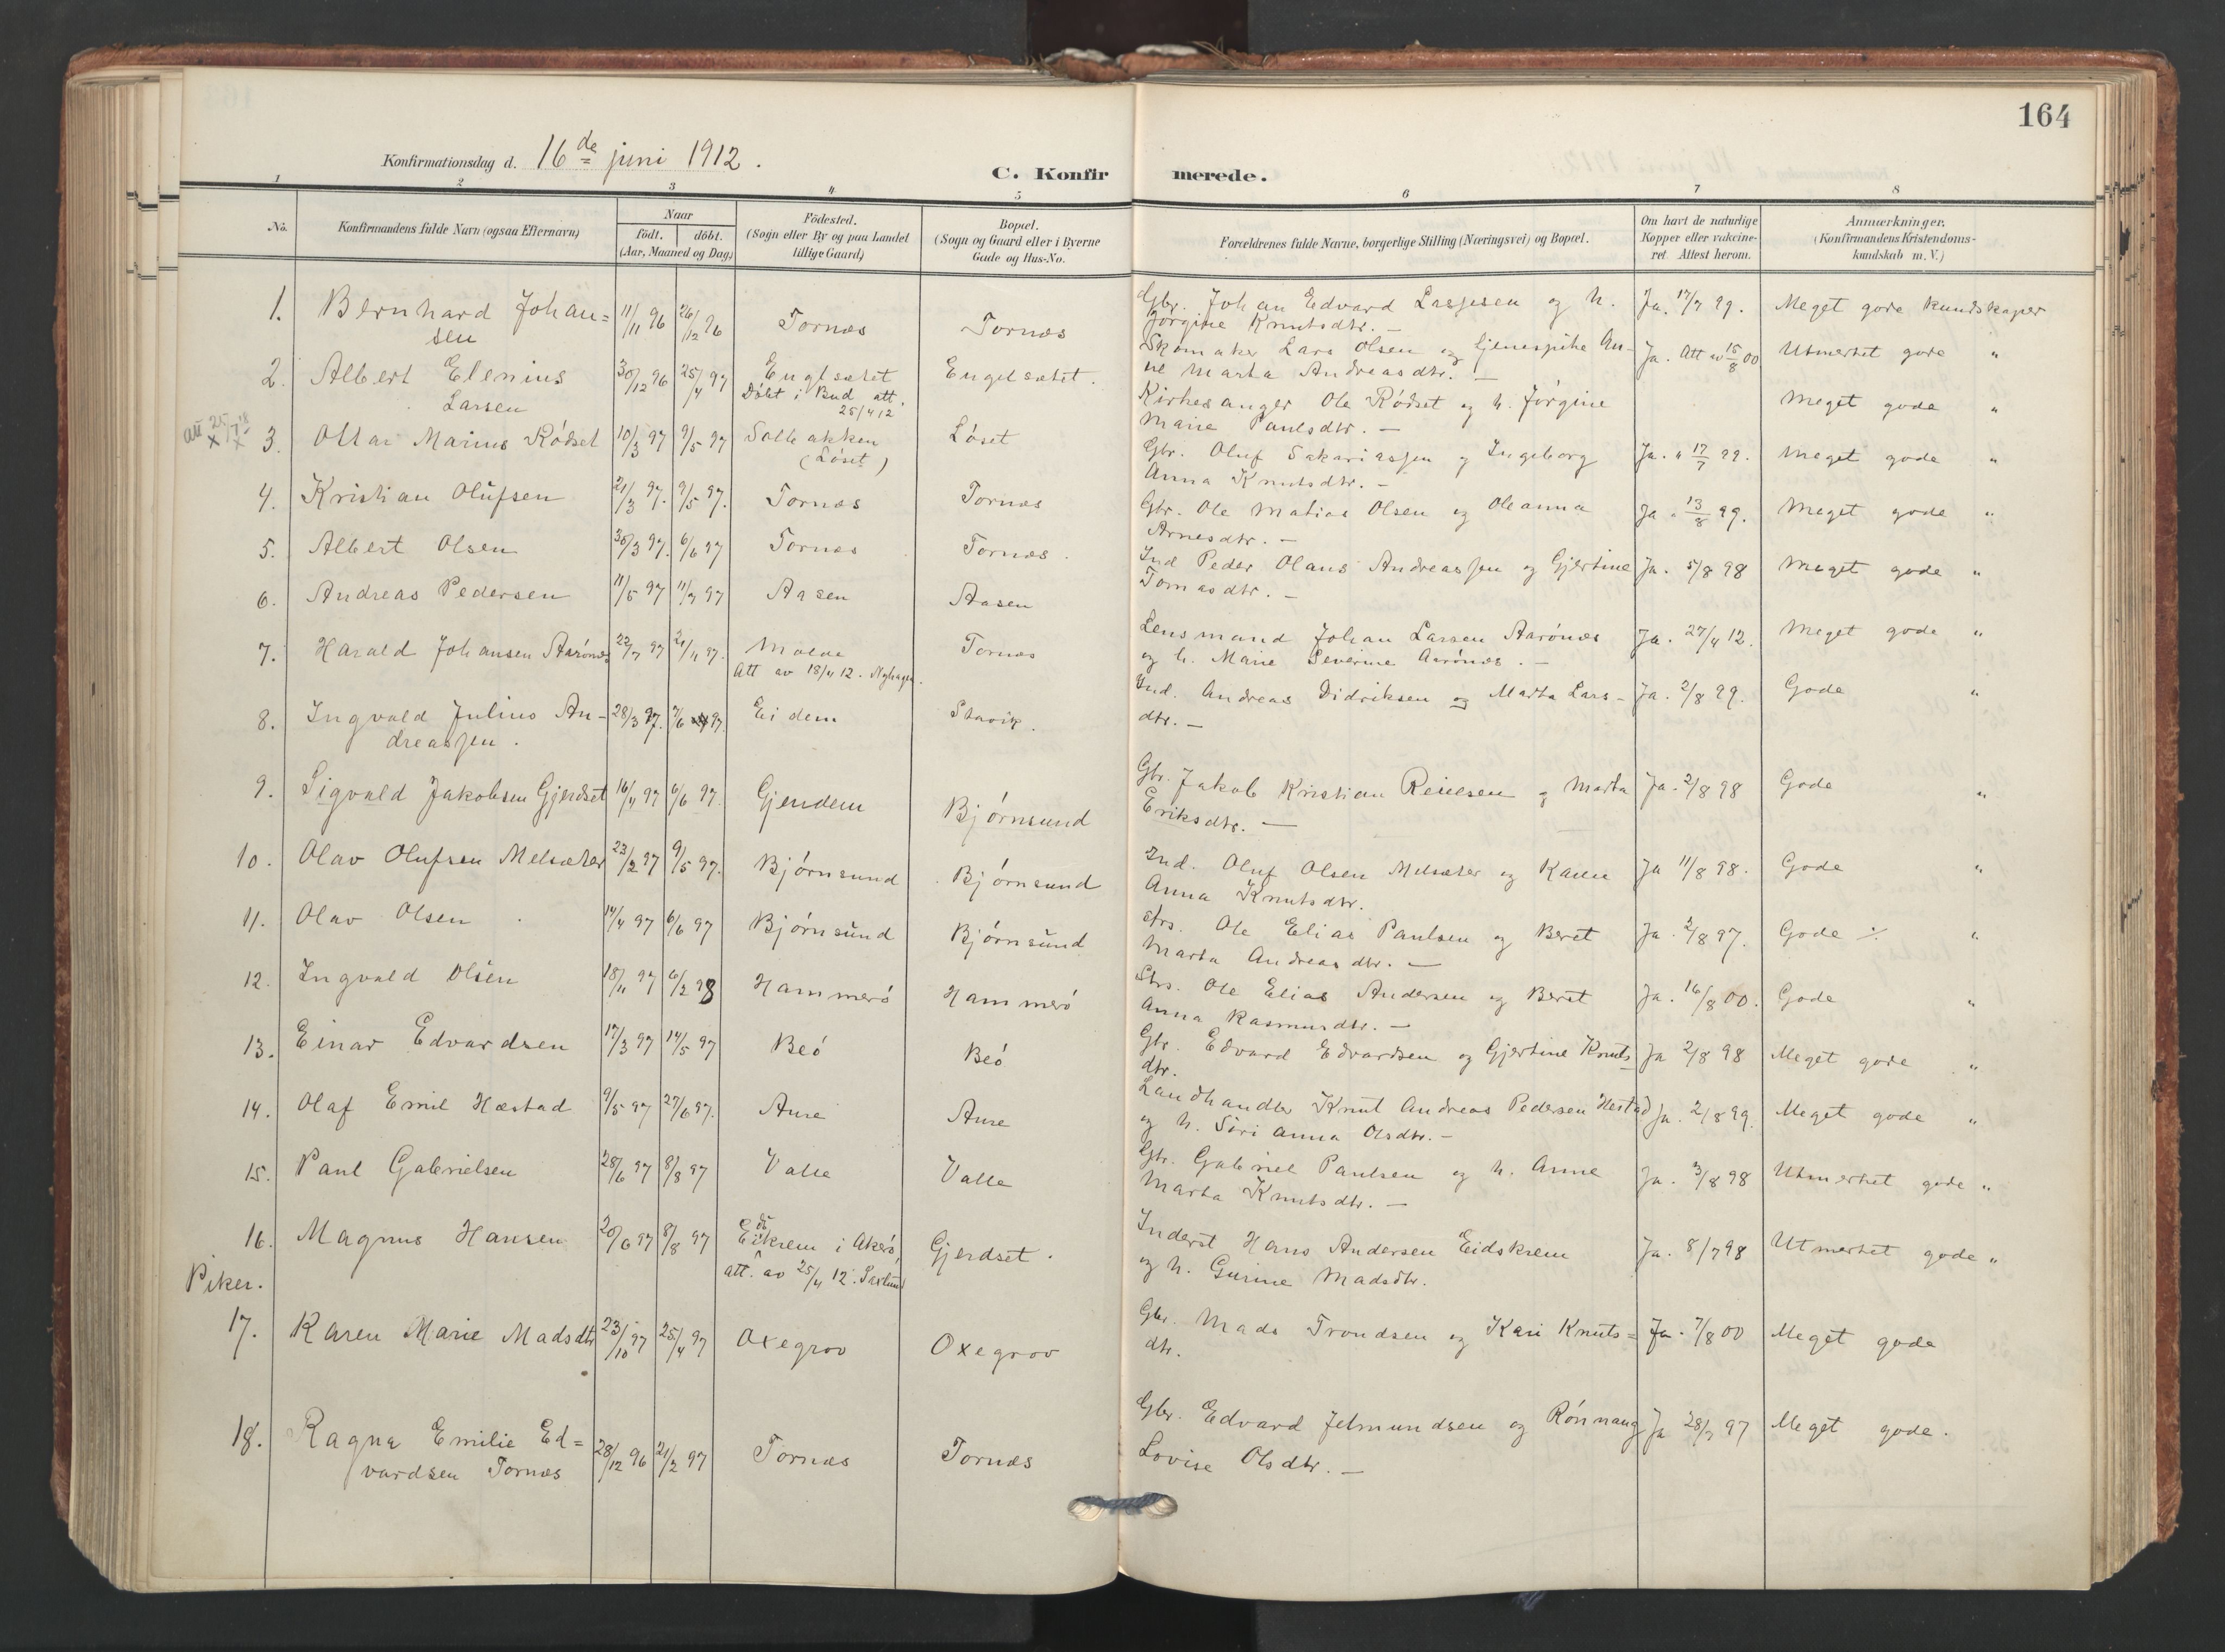 164
Konfirmationsdag d. 16de juni 1912.
C. Konfirmerede.
1 2 3 4 5 6 7 8
No. Konfirmandens fulde Navn (ogsaa Efternavn) Naar født. døbt. (Aar, Maaned og Dag) Fødested. (Sogn eller By og paa Landet tillige Gaard) Bopæl. (Sogn og Gaard eller i Byerne Gade og Hus-No. Forældrenes fulde Navne, borgerlige Stilling (Næringsvei) og Bopæl. Om havt de naturlige Kopper eller vakcineret. Attest herom. Anmærkninger. (Konfirmandens Kristendomskundskab m. V.)
1. Bernhard Johan= 11/11 96 26/12 96 Tornes Tornes Gbr. Johan Edvard Lassesen og h. Ja. 17/7 99. Meget gode kundskaper
sen Jørgine Knutsdtr. —
2. Albert Elenius 30/12 96 25/4 97 Englsætet Engelsætet. Skomaker Lars Olsen og tjenespike An- Ja. Att av 15/8 00 Utmerket gode "
Larsen Døbt i Bud att. 25/4 12 ne Marta Andreasdtr. —
att 25/7 18 x x
3. Ottar Marius Rødset 10/3 97 9/5 97 Solbakken Løset Kirkesanger Ole Rødset og h. Jørgine Meget gode "
(Løset) Marie Paulsdtr. —
4. Kristian Olufsen 21/3 97. 9/5 97. Tornes Tornes Gbr. Oluf Sakariassen og Ingeborg Ja. " 17/7 99. Meget gode "
Anna Knutsdtr. —
5. Albert Olsen 30/3 97. 6/6 97 Tornes Tornes. Gbr. Ole Matias Olsen og Oleanna Ja " 13/8 99. Meget gode "
Arnesdtr. —
6. Andreas Pedersen 11/5 97 11/7 97 Aasen Aasen Ind Peder Olaus Andreassen og Gjertine Ja. 5/8 98 Meget gode "
Tomasdtr. —
7. Harald Johansen Aarønes 22/7 97 21/11 97. Molde Tornes Lensmand Johan Larsen Aarønes Ja. 27/4 12. Meget gode "
Att av 18/4 12. og h. Marie Severine Aarønes. —
8. Ingvald Julius An- 28/3 97. 7/6 97. Eidem Stavik. Ind. Andreas Didriksen og Marta Lars- Ja. 2/8 99. Gode "
dreassen. dtr. —
9. Sigvald Jakobsen Gjerdset 16/4 97 6/6 97. Gjendem Bjørnsund Gbr. Jakob Kristian Reielsen og Marta Ja. 2/8 98 Gode "
Eriksdtr. —
10. Olav Olufsen Melsæter 23/2 97 9/5 97. Bjørnsund Bjørnsund Ind. Oluf Olsen Melsæter og Karen Ja 11/8 98. Gode "
Anna Knutsdtr.
11. Olav Olsen 14/4 97 6/6 97 Bjørnsund Bjørnsund Strs. Ole Elias Paulsen og Beret Ja. 2/8 97. Gode ./. "
Marta Andreasdtr. —
12. Ingvald Olsen 18/11 97 6/2 98 Hammerø Hammerø Strs. Ole Elias Andersen og Beret Ja. 16/8 00. Gode "
Anna Rasmusdtr. —
13. Einar Edvardsen 17/3 97 14/5 97 Beø Beø Gbr. Edvard Edvardsen og Gjertine Knuts Ja 2/8 98 Meget gode "
dtr.
14. Olaf Emil Hæstad 9/5 97 27/6 97. Aure Aure Landhandler Knut Andreas Pedersen Hestad Ja. 2/8 99. Meget gode "
og h. Siri Anna Olsdtr. —
15. Paul Gabrielsen 28/6 97 8/8 97 Valle Valle Gbr. Gabriel Paulsen og h. Anne Ja. 3/8 98 Utmerket gode "
Marta Knutsdtr. —
16. Magnus Hansen 20/6 97 8/8 97 Eidskrem i Akerø, Gjerdset. Inderst Hans Andersen Eidskrem Ja. 8/7 98 Utmerket gode "
att. av 25/4 12. og h. Gurine Madsdtr.
Piker.
17. Karen Marie Madsdtr 23/10 97 25/4 97 Oxegrov Oxegrov Gbr. Mads Trondsen og Kari Knuts= Ja. 7/8 00 Meget gode
dtr.
18. Ragna Emilie Ed= 28/12 96 21/2 97 Tornes Tornes Gbr. Edvard Jetmundsen og Rønnaug Ja 28/7 97 Meget gode.
vardsen Tornes Lovise Olsdtr. —